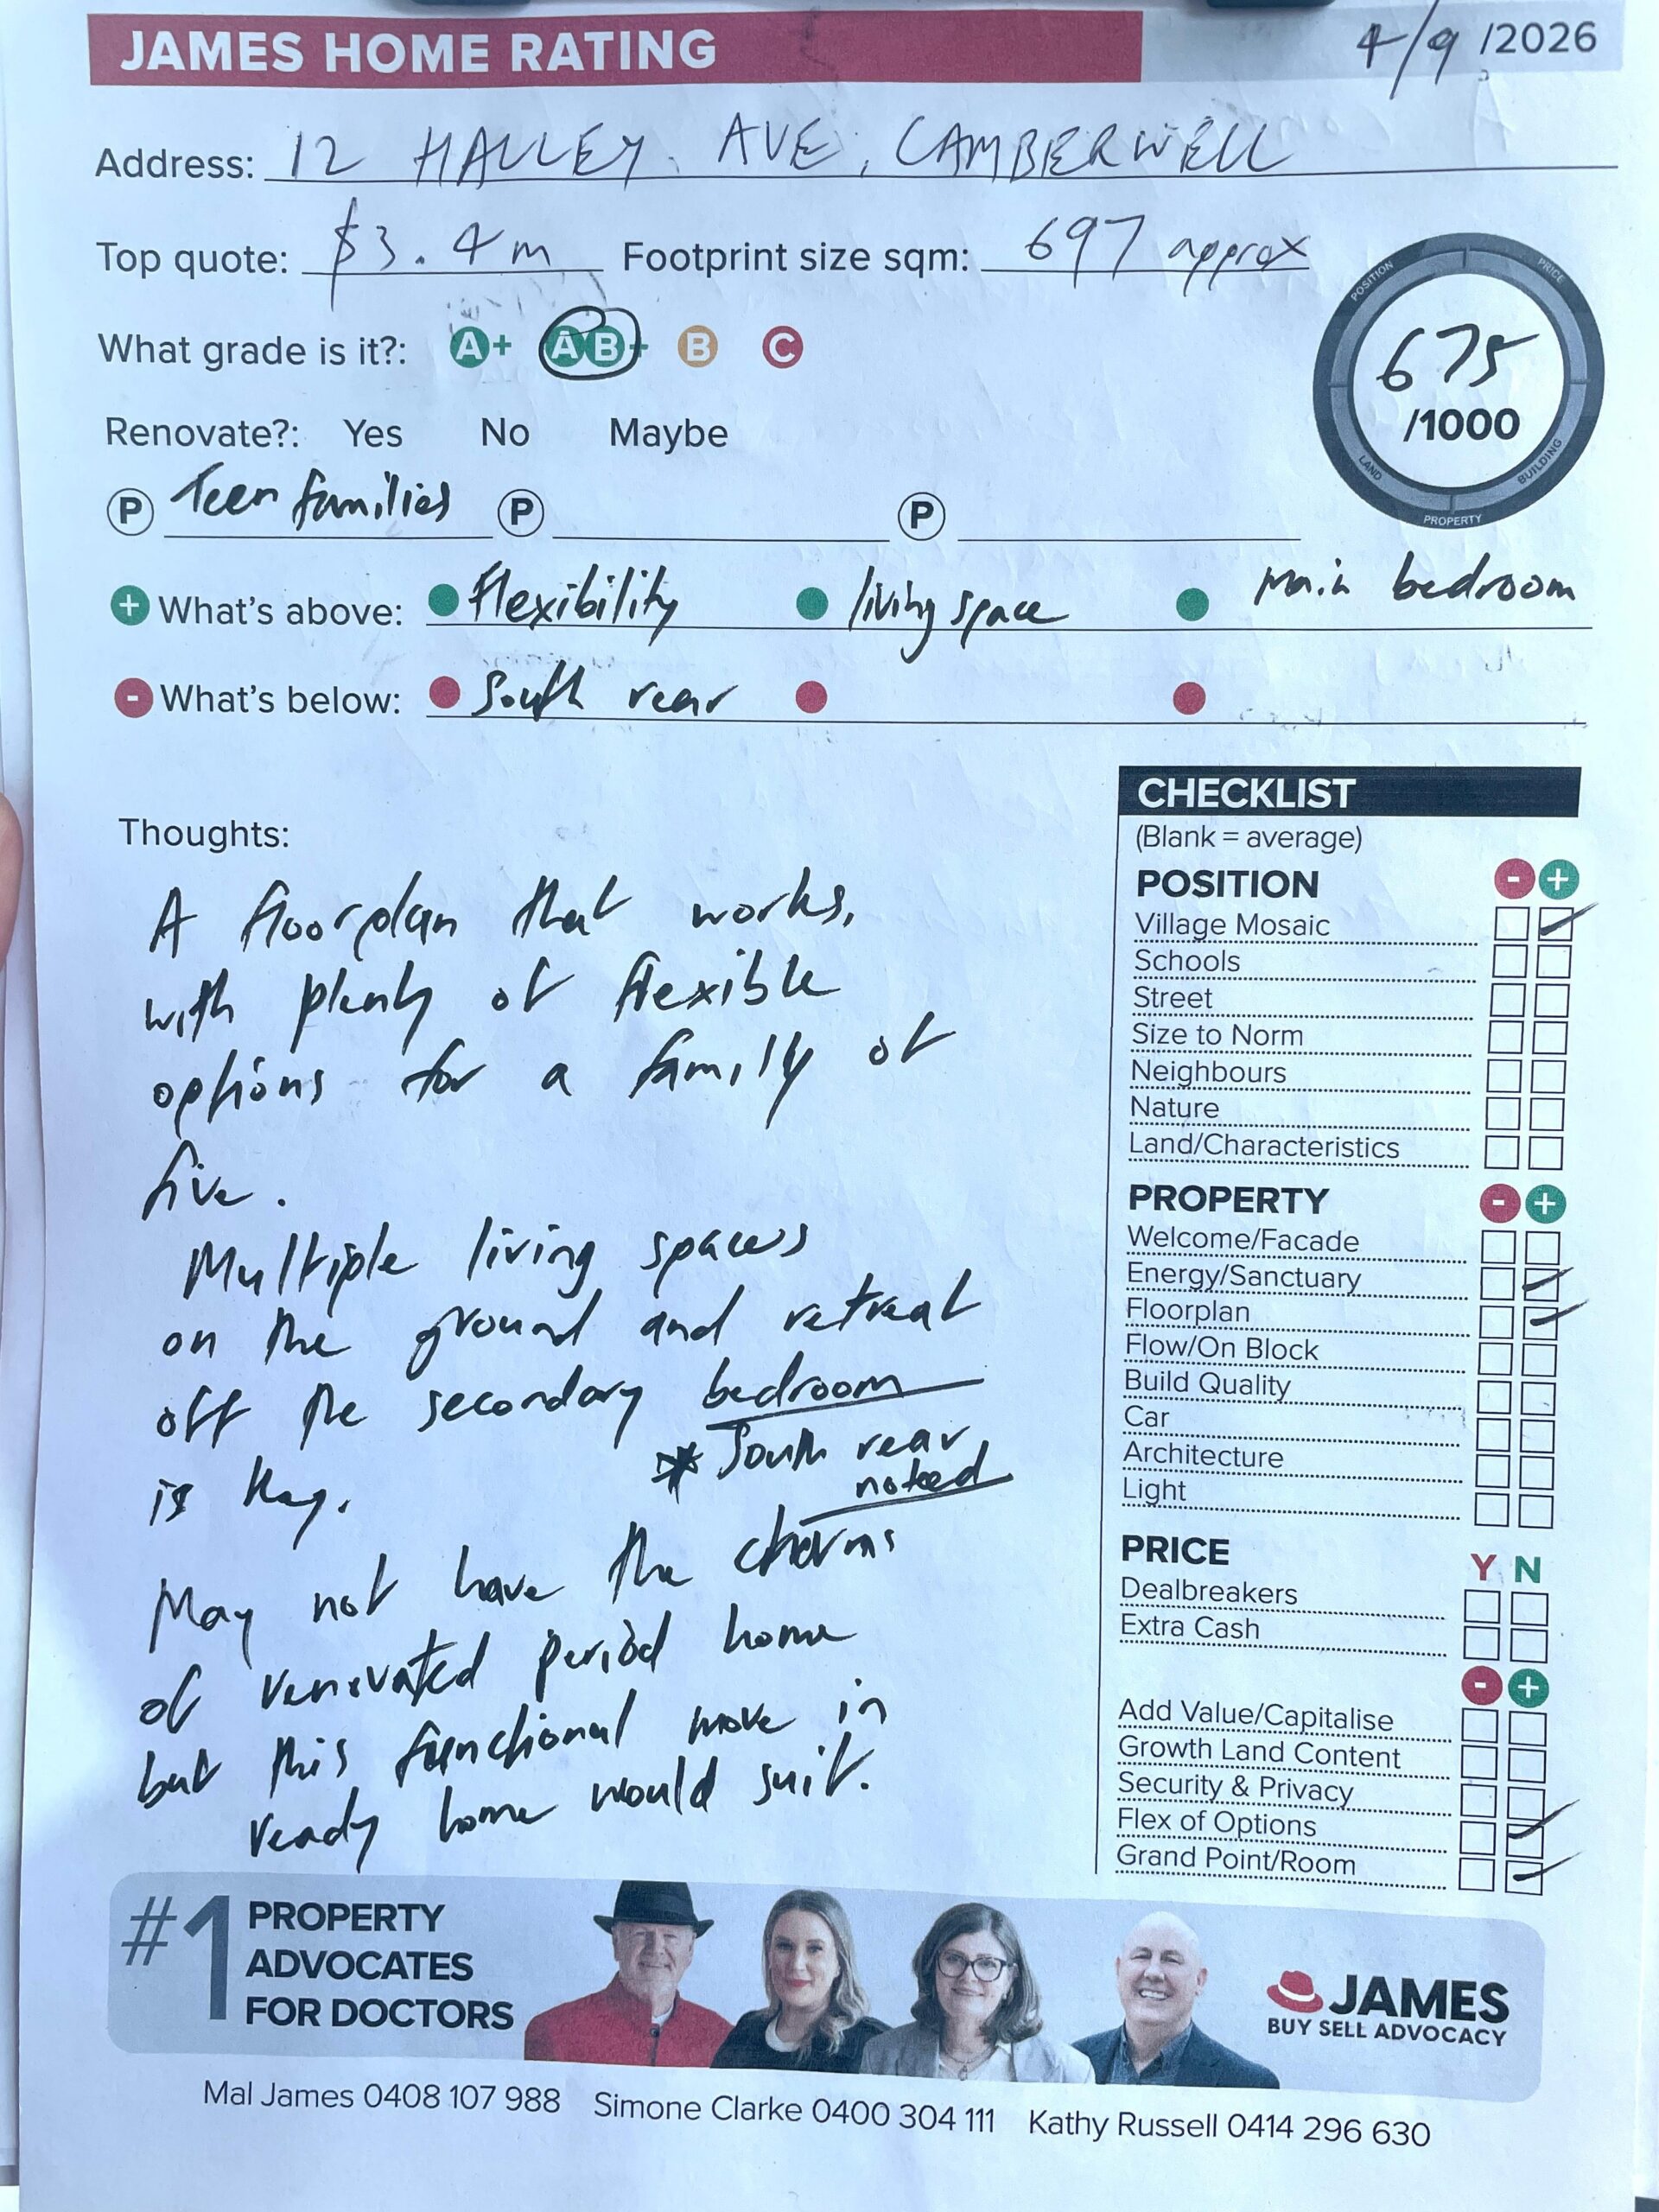 JAMES HOME RATING
4/9 /2026
Address: 12 HALLEY AVE, CAMBERWELL
Top quote: $3.4m Footprint size sqm: 697 approx
POSITION PRICE LAND BUILDING PROPERTY
675
/1000
What grade is it?: A+ AB+ B C
Renovate?: Yes No Maybe
P Teen families P P
+ What's above: flexibility living space main bedroom
- What's below: South rear
Thoughts:
A floorplan that works,
with plenty of flexible
options for a family of
five.
Multiple living spaces
on the ground and retreat
off the secondary bedroom
is key.
* South rear
noted
May not have the charms
of renovated period home
but this functional move in
ready home would suit.
CHECKLIST
(Blank = average)
POSITION - +
Village Mosaic
Schools
Street
Size to Norm
Neighbours
Nature
Land/Characteristics
PROPERTY - +
Welcome/Facade
Energy/Sanctuary
Floorplan
Flow/On Block
Build Quality
Car
Architecture
Light
PRICE Y N
Dealbreakers
Extra Cash
- +
Add Value/Capitalise
Growth Land Content
Security & Privacy
Flex of Options
Grand Point/Room
#1 PROPERTY
ADVOCATES
FOR DOCTORS
JAMES
BUY SELL ADVOCACY
Mal James 0408 107 988 Simone Clarke 0400 304 111 Kathy Russell 0414 296 630